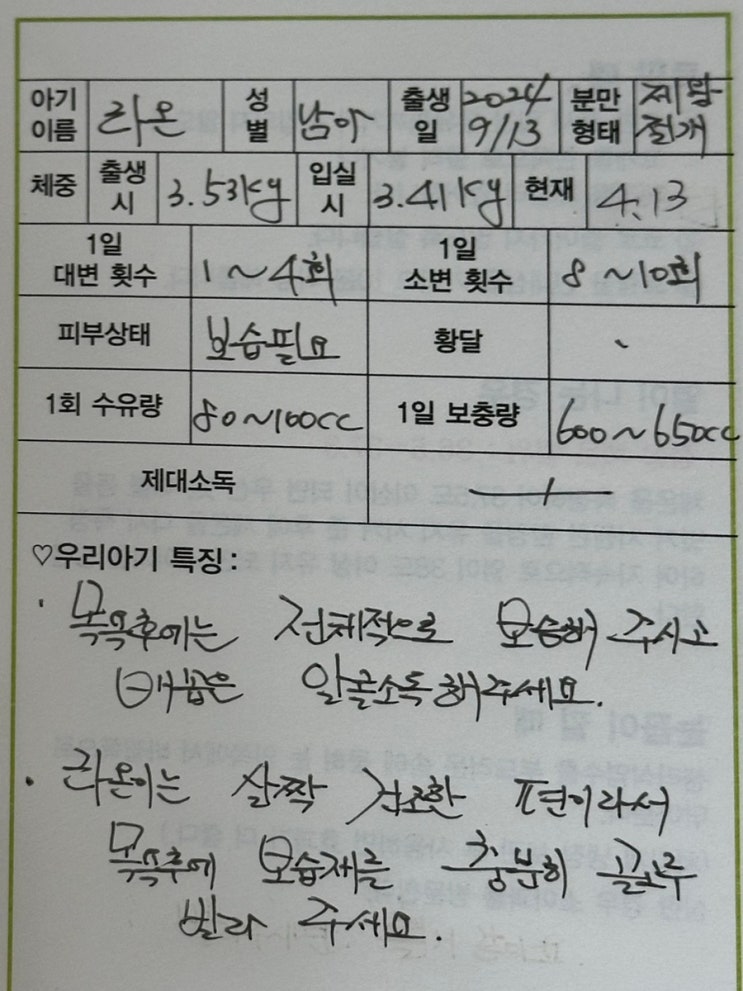 아기 이름 라온 성별 남아 출생일 2024 9/13 분만형태 제왕절개
체중 출생시 3.53kg 입실시 3.41kg 현재 4.13
1일 대변 횟수 1~4회 1일 소변 횟수 8~10회
피부상태 보습필요 황달 -
1회 수유량 80~100cc 1일 보충량 600~650cc
제대소독
♡우리아기 특징:
· 목욕후에는 전체적으로 보습해 주시고
배꼽은 알콜소독해주세요.
· 라온이는 살짝 건조한 편이라서
목욕후에 보습제를 충분히 골고루
발라 주세요.